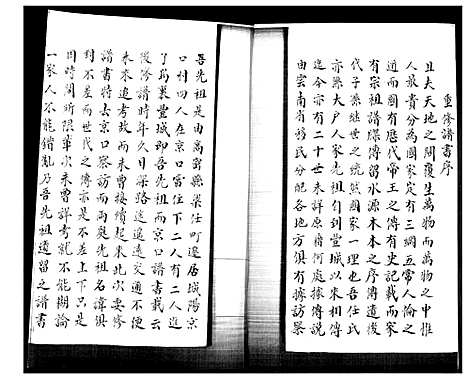 重修譜書序
且夫天地之間覆生萬物而萬物之中惟
人最貴分為國家定有三綱五常人倫之
道而國有歷代帝王之傳有史記載而家
有宗祖譜牒傳留水源木本之序傳遺後
代子孫繼世之統然國家一理也吾任氏
亦縣大戶人家先祖引到疊城以來相傳
迄今亦有二十世未詳原籍何處據傳說
由雲南省移民分配各地方俱有據訪祭
吾先祖是由高密縣柴任町遷居城陽京
口村四人在京口富住下二人有二人進
了萬疊城即吾先祖而京口譜書載云
後修譜時年久日深路途遙遠交通不便
未來追考故而未曾接續起來此次要修
譜書特去京口西戾先祖名諱俱
對不差而世代之傳亦是不差上下只是
因時間所限草次未曾詳考就不能糊論
一家人不能錯亂乃吾先祖遺留之譜書